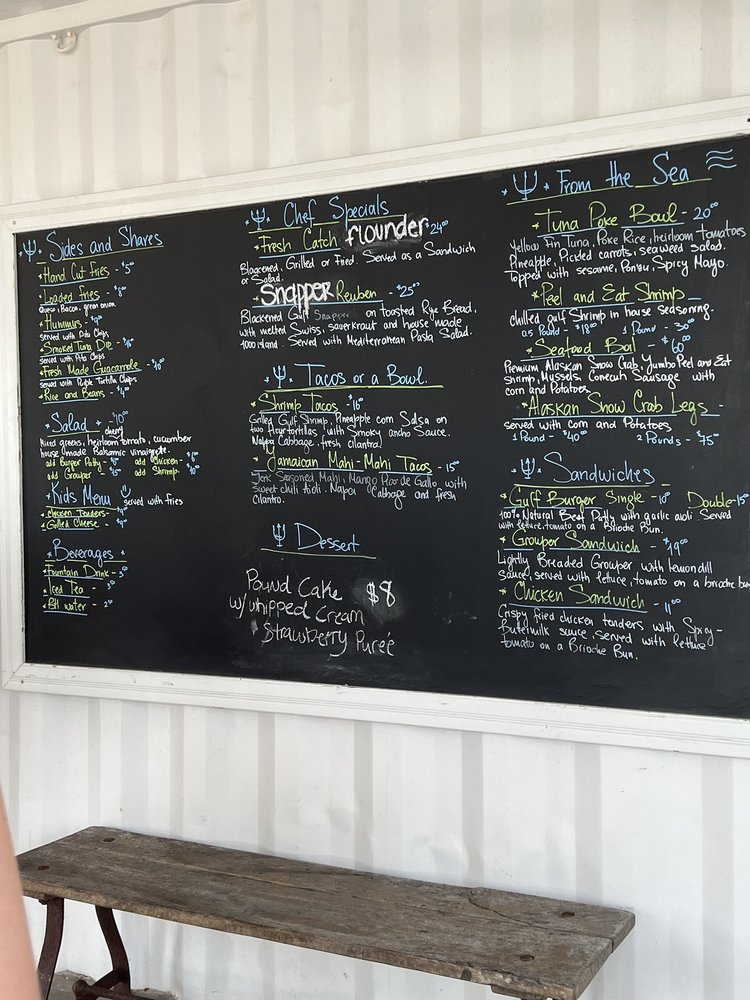 Sides and Shares
*Hand Cut Fries - $5⁰⁰
*Loaded fries -
Queso, Bacon, green onion.
*Hummus -
served with Pita Chips
*Smoked Tuna Dip -
served with Pita Chips
*Fresh Made Guacamole - $10⁰⁰
served with Purple Tortilla Chips
*Rice and Beans -
Salad - $10⁰⁰
Mixed greens, heirloom tomato, cucumber
house made Balsamic vinaigrette.
add Burger Patty - add Chicken -
add Grouper - add Shrimp -
Kids Menu served with fries
*Chicken Tenders -
*Grilled Cheese -
Beverages
*Fountain Drink -
*Iced Tea -
*PH water - 2⁰⁰
Chef Specials
*Fresh Catch Flounder $24⁰⁰
Blackened, Grilled or Fried. Served as a Sandwich
or Salad.
*Snapper Reuben - $25⁰⁰
Blackened Gulf Snapper on toasted Rye Bread.
with melted Swiss, sauerkraut and house made
1000 island. Served with Mediterranean Pasta Salad.
Tacos or a Bowl.
*Shrimp Tacos - $16⁰⁰
Grilled Gulf Shrimp, Pineapple corn Salsa on
two flour tortillas, with Smokey ancho Sauce.
Napa Cabbage, fresh cilantro.
*Jamaican Mahi-Mahi Tacos - 15⁰⁰
Jerk Seasoned Mahi, Mango Pico de Gallo with
sweet chili Aioli. Napa Cabbage and fresh
cilantro.
Dessert
Pound Cake $8
w/ whipped Cream
+ Strawberry Pureé
From the Sea
*Tuna Poke Bowl - 20⁰⁰
Yellow Fin Tuna, Poke Rice, heirloom Tomatoes
Pineapple, Pickled carrots, seaweed salad.
Topped with sesame, Ponzu, Spicy Mayo.
*Peel and Eat Shrimp
chilled gulf Shrimp in house seasoning.
0.5 Pound - $18⁰⁰ 1 Pound - 30⁰⁰
*Seafood Boil - $60⁰⁰
Premium Alaskan Snow Crab, Jumbo Peel and Eat
Shrimp, Mussels, Conecuh Sausage with
corn and Potatoes
*Alaskan Snow Crab Legs -
served with corn and Potatoes
1 Pound - $40⁰⁰ 2 Pounds - $75
Sandwiches
*Gulf Burger Single - 10⁰⁰ Double -
100% Natural Beef Patty with garlic aioli. Served
with lettuce, tomato on a Brioche Bun.
*Grouper Sandwich - $19⁰⁰
Lightly Breaded Grouper with lemon dill
Sauce, served with lettuce, tomato on a brioche bun
*Chicken Sandwich - 11⁰⁰
Crispy fried chicken tenders with Spicy -
Buttermilk sauce, served with lettuce
tomato on a Brioche Bun.